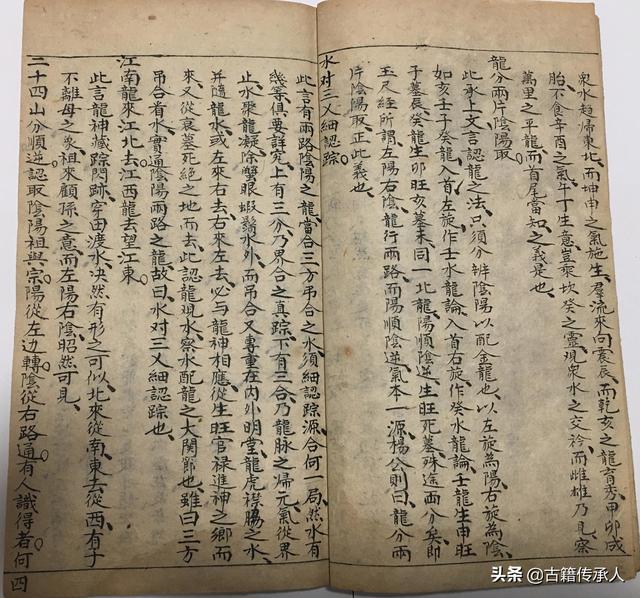 泉水趨歸東北、而坤申之氣施生、羣流來向袁辰、而乾亥之龍育秀、甲卯成
胎不食辛酉之氣、午丁生意、豈乘坎癸之靈、現泉水之交衿、而雌雄乃見、察
萬里之平龍、而首尾當知之義是也、
龍分兩片陰陽取、
此承上文言認龍之法、只須分辨陰陽以配金龍也、以左旋為陽、右旋為陰、
如亥龍入首左旋作壬水龍論、入首右旋作癸水龍論、壬龍生申旺
子墓辰、癸龍生卯旺亥墓未、同一北龍、陽順陰逆、生旺死墓殊途而分矣、即
玉尺經所謂、左陽右陰龍行兩路、而陽順陰逆氣本一源、楊公則曰、龍分兩
片陰陽取、正此義也、
水对三叉細認踪、
此言有兩路陰陽之龍、當合三方吊合之水、須細認踪源合何一局、然水有
幾等、俱要詳究、上有三分、乃界合之真踪、下有三合、乃龍脉之歸元、氣從界
止、水聚龍凝、除蟹眼蝦鬚水外、而吊合又專重在內外明堂、龍虎裎腸之水、
并隨龍水、或左來右去、右來左去、必與龍神相應、從生旺官禄進神之鄉而
來、又從衰墓死絶之地而去、此認龍現水、察水配龍之大関節也、雖曰三方
吊合看水、實通陰陽兩路之龍、故曰水对三叉細認踪也、
江南龍來江北去、江西龍去望江東、
此言龍神藏踪閃跡、穿田渡水、决然有形之可似、北來從南、東去從西、有子
不離母之象、祖來顧孫之意、而左陽右陰昭然可見、
二十四山分順逆、認取陰陽祖與宗、陽從左边轉、陰從右路通、有人識得者、何
四
头条 @古籍传承人